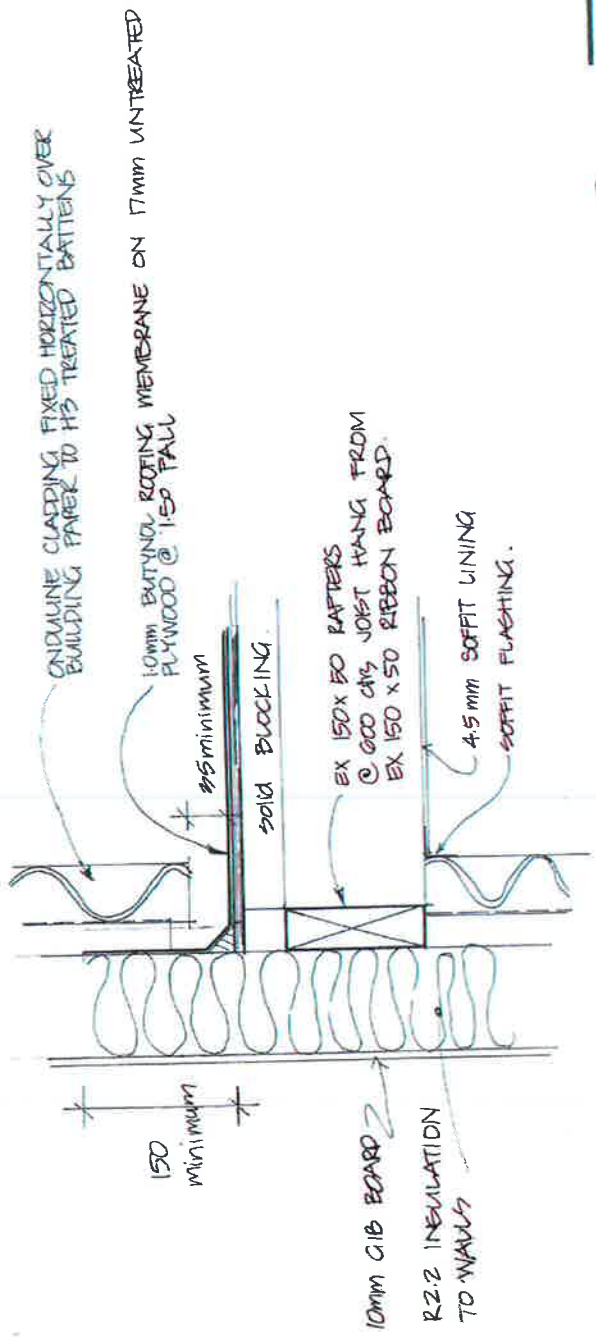 ONDULINE CLADDING FIXED HORIZONTALLY OVER
BUILDING PAPER TO H3 TREATED BATTENS
1.0mm BUTYNOL ROOFING MEMBRANE ON 17mm UNTREATED
PLYWOOD @ 1:50 FALL
35 minimum
solid BLOCKING.
EX 150 x 50 RAFTERS
@ 600 crs JOIST HANG FROM
EX 150 x 50 RIBBON BOARD.
4.5 mm SOFFIT LINING
SOFFIT FLASHING.
150
minimum
10mm GIB BOARD
R2.2 INSULATION
TO WALLS